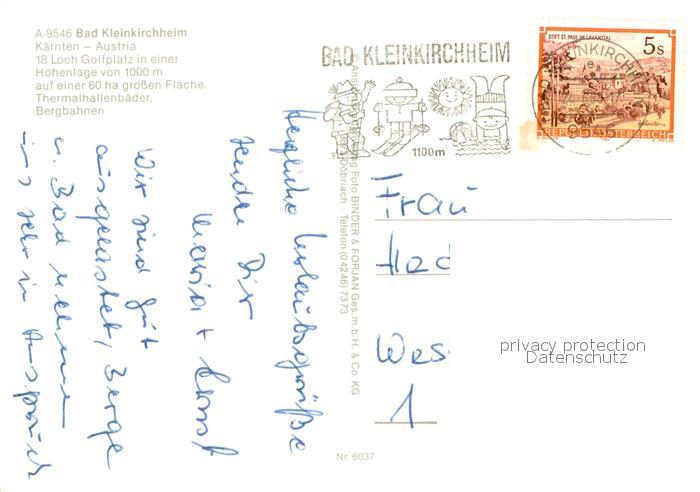 A-9546 Bad Kleinkirchheim
Kärnten – Austria
18 Loch Golfplatz in einer
Höhenlage von 1000 m
auf einer 60 ha großen Fläche.
Thermalhallenbäder,
Bergbahnen
BAD KLEINKIRCHHEIM
1100m
STIFT ST. PAUL IM LAVANTTAL
5s
REPUBLIK ÖSTERREICH
KLEINKIRCHH
9546
Foto BINDER & FORJAN Ges. m. b. H. & Co. KG
Döbriach · Telefon (04246) 7373
Herzliche Urlaubsgrüße
senden Dir
Maria + Ernst
Wir sind gut
ausgelastet, Berge
u. Bad nehmen
uns sehr in Anspruch
Frau
Hed
Wes
1
privacy protection
Datenschutz
Nr. 6037